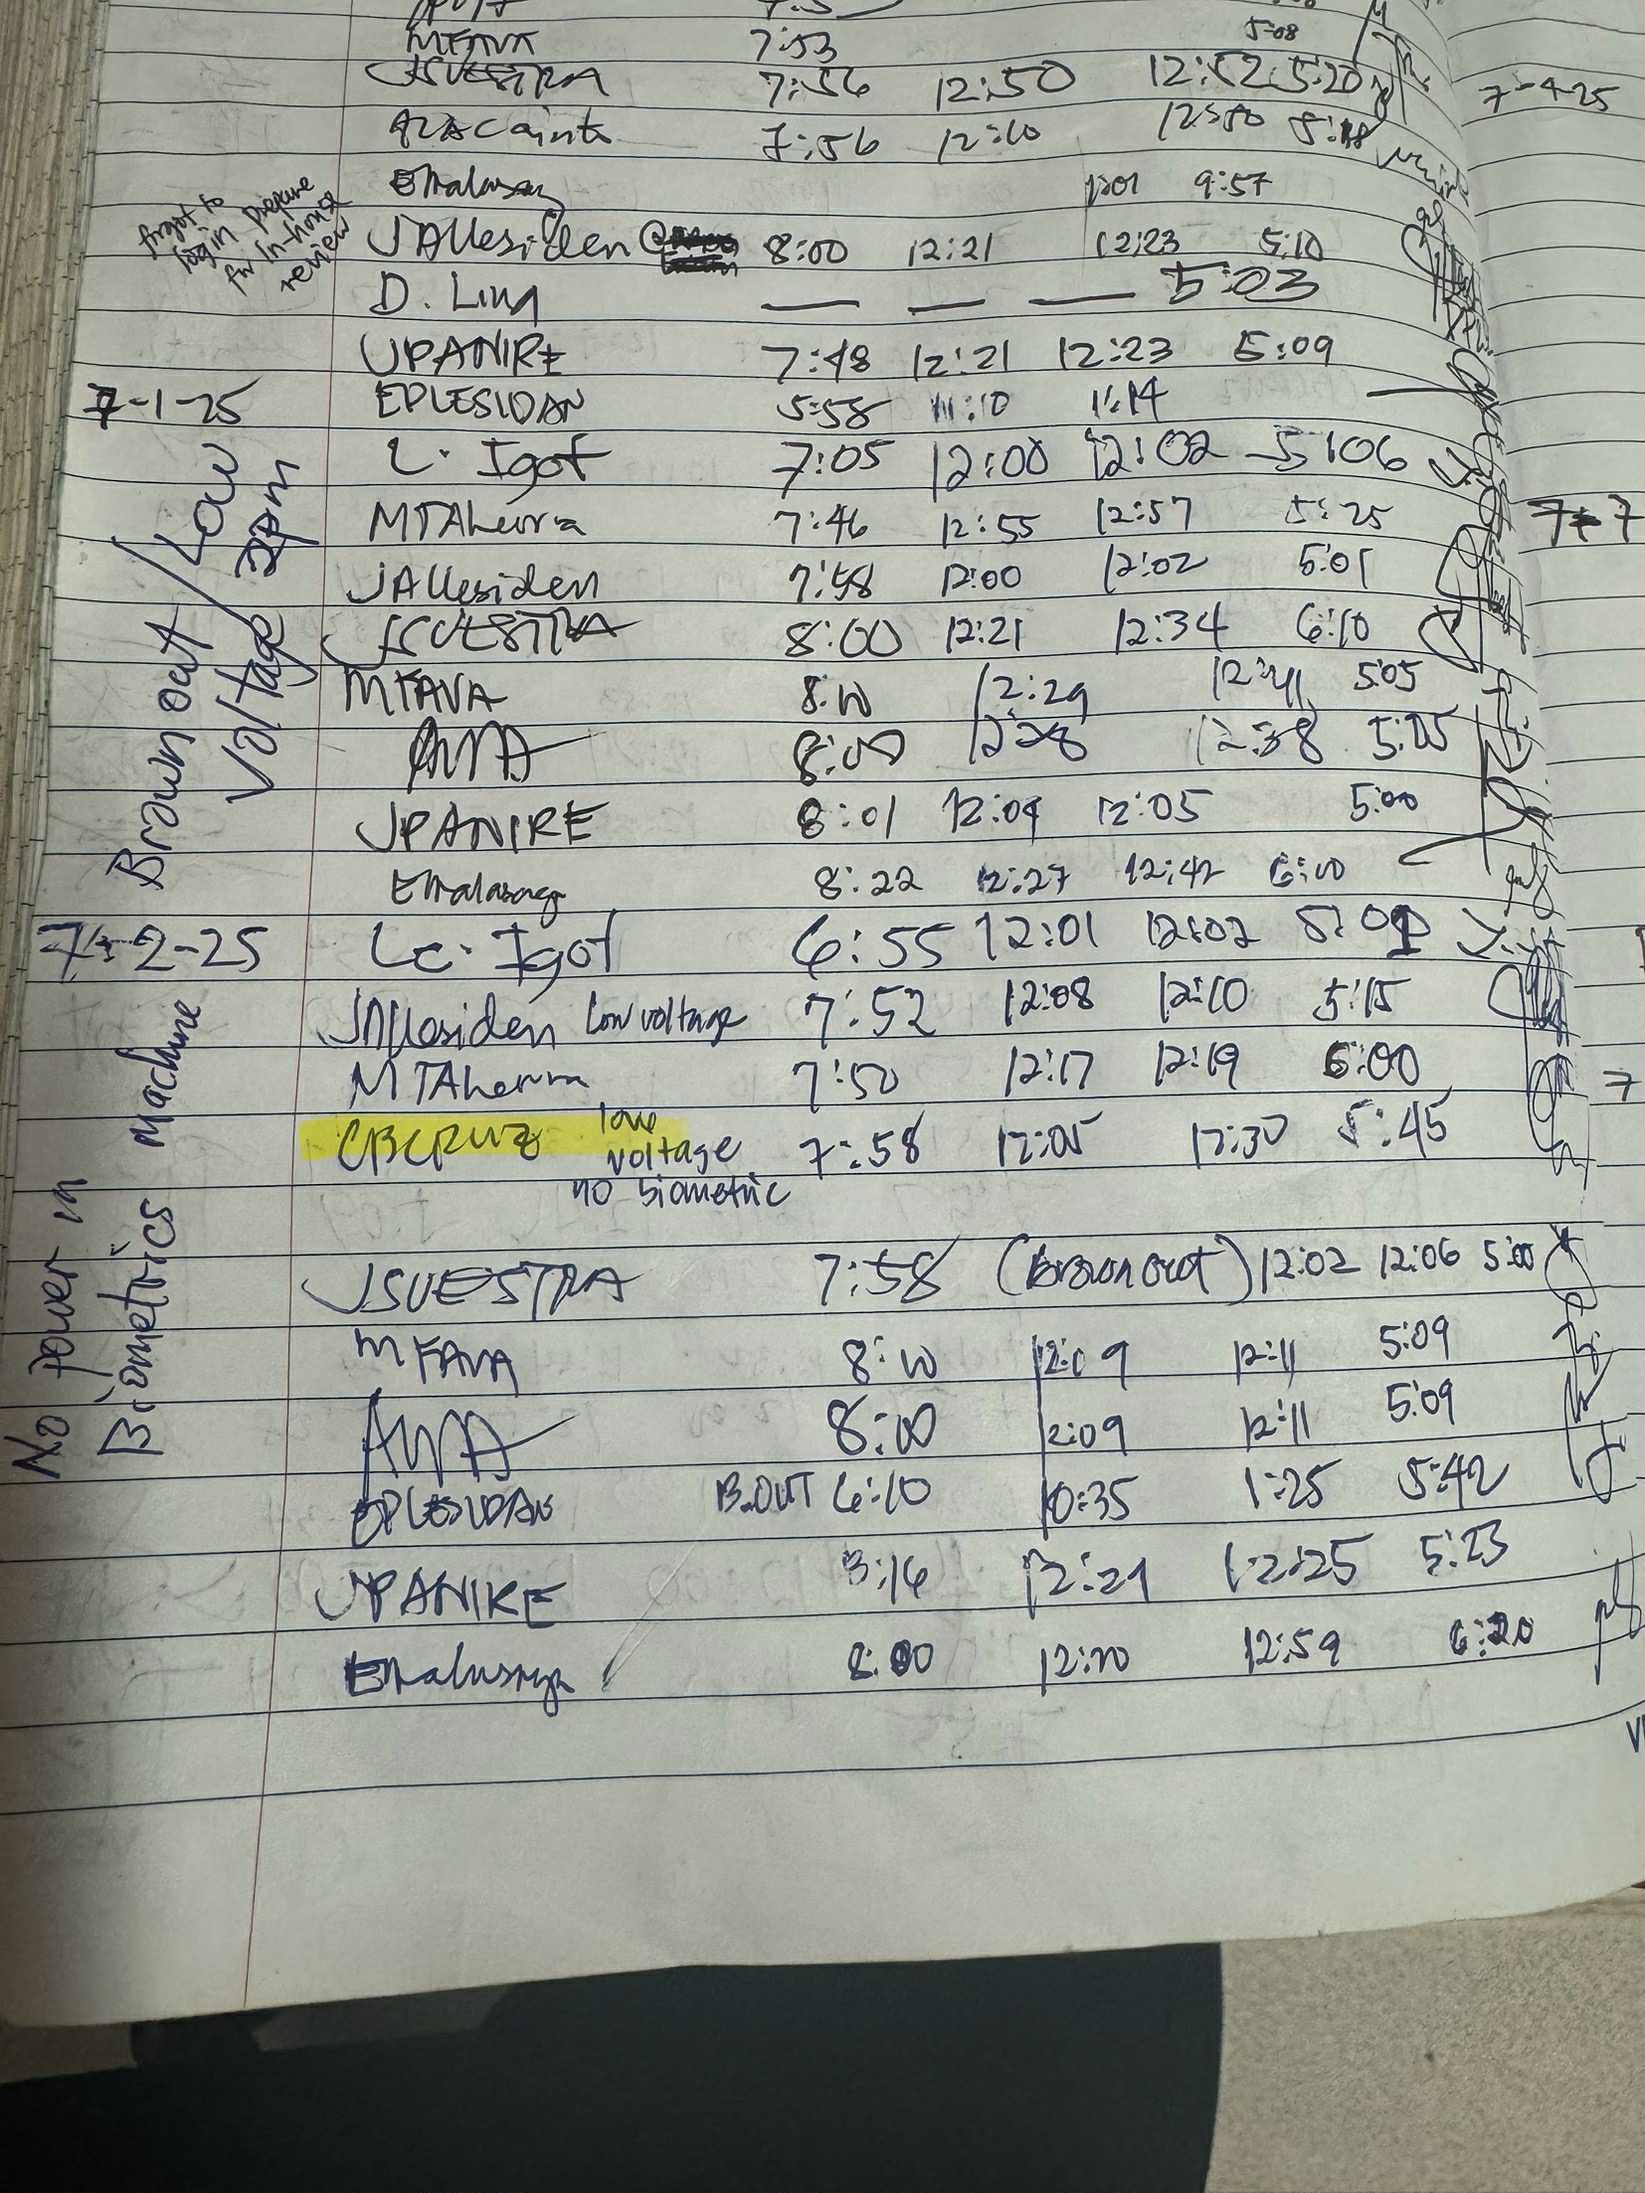 MFAVA 7:53 5:08
JSVESTRA 7:56 12:50 12:52 5:20
7:56 12:10 12:50 5:18
Emalasaga 1201 9:57
forgot to login prepare for in-house review
JAllesiden 8:00 12:21 12:23 5:10
D. Ling — — — 5:03
JPANIRE 7:48 12:21 12:23 5:09
7-1-25 EPLESIDAN 5:58 11:10 11:14
L. Igot 7:05 12:00 12:02 5:06
Brown out / Low Voltage 2pm
MTAherrra 7:46 12:55 12:57 5:25
JAllesiden 7:58 12:00 12:02 5:01
JSVESTRA 8:00 12:21 12:34 6:10
MFAVA 8:10 12:29 12:41 5:05
8:00 12:28 12:38 5:25
JPANIRE 8:01 12:04 12:05 5:00
Emalasaga 8:22 12:27 12:42 6:00
7-2-25 Lc. Igot 6:55 12:01 12:02 5:01
No power in Biometrics Machine
JAllesiden Low voltage 7:52 12:08 12:10 5:15
MTAherrra 7:50 12:17 12:19 6:00
CBCRUZ low voltage no biometric 7:58 12:05 12:30 5:45
JSVESTRA 7:58 (Brown out) 12:02 12:06 5:00
MFAVA 8:10 12:09 12:11 5:09
8:00 12:09 12:11 5:09
EPLESIDAN B.OUT 6:10 10:35 1:25 5:42
JPANIRE 8:16 12:24 12:25 5:23
Emalasaga 8:00 12:20 12:59 6:20
7-4-25
7-7
7